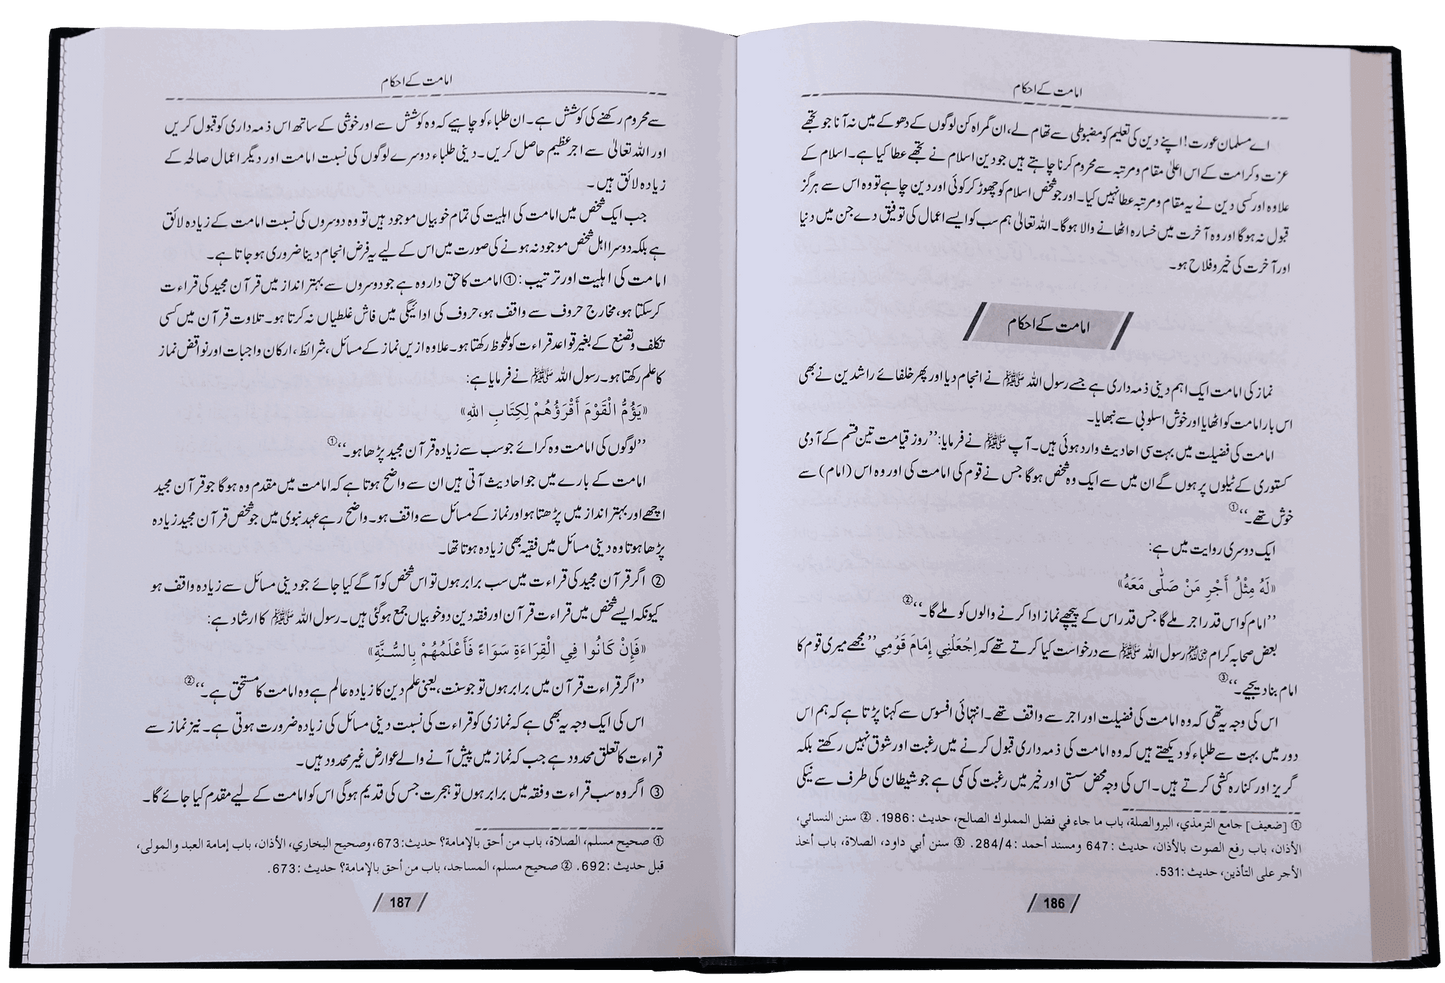 امامت کے احکام
اے مسلمان عورت! اپنے دین کی تعلیم کو مضبوطی سے تھام لے، ان گمراہ کن لوگوں کے دھوکے میں نہ آنا جو تجھے
عزت و کرامت کے اس اعلیٰ مقام و مرتبہ سے محروم کرنا چاہتے ہیں جو دین اسلام نے تجھے عطا کیا ہے۔ اسلام کے
علاوہ اور کسی دین نے یہ مقام و مرتبہ عطا نہیں کیا۔ اور جو شخص اسلام کو چھوڑ کر کوئی اور دین چاہے تو وہ اس سے ہرگز
قبول نہ ہوگا اور وہ آخرت میں خسارہ اٹھانے والا ہوگا۔ اللہ تعالیٰ ہم سب کو ایسے اعمال کی توفیق دے جن میں دنیا
اور آخرت کی خیر و فلاح ہو۔
امامت کے احکام
نماز کی امامت ایک اہم دینی ذمہ داری ہے جسے رسول اللہ ﷺ نے انجام دیا اور پھر خلفائے راشدین نے بھی
اس بار امامت کو اٹھایا اور خوش اسلوبی سے نبھایا۔
امامت کی فضیلت میں بہت سی احادیث وارد ہوئی ہیں۔ آپ ﷺ نے فرمایا: ’’روز قیامت تین قسم کے آدمی
کستوری کے ٹیلوں پر ہوں گے ان میں سے ایک وہ شخص ہوگا جس نے قوم کی امامت کی اور وہ اس (امام) سے
خوش تھے۔‘‘①
ایک دوسری روایت میں ہے:
«لَهُ مِثْلُ أَجْرِ مَنْ صَلّٰى مَعَهُ»
’’امام کو اس قدر اجر ملے گا جس قدر اس کے پیچھے نماز ادا کرنے والوں کو ملے گا۔‘‘②
بعض صحابہ کرام رضی اللہ عنہم رسول اللہ ﷺ سے درخواست کیا کرتے تھے کہ اِجْعَلْنِي إِمَامَ قَوْمِي ’’مجھے میری قوم کا
امام بنا دیجیے۔‘‘③
اس کی وجہ یہ تھی کہ وہ امامت کی فضیلت اور اجر سے واقف تھے۔ انتہائی افسوس سے کہنا پڑتا ہے کہ ہم اس
دور میں بہت سے طلباء کو دیکھتے ہیں کہ وہ امامت کی ذمہ داری قبول کرنے میں رغبت اور شوق نہیں رکھتے بلکہ
گریز اور کنارہ کشی کرتے ہیں۔ اس کی وجہ محض سستی اور خیر میں رغبت کی کمی ہے جو شیطان کی طرف سے نیکی
① [ضعیف] جامع الترمذي، البر والصلة، باب ما جاء في فضل المملوك الصالح، حديث: 1986. ② سنن النسائي،
الأذان، باب رفع الصوت بالأذان، حديث: 647 ومسند أحمد: 284/4. ③ سنن أبي داود، الصلاة، باب أخذ
الأجر على التأذين، حديث: 531.
186
امامت کے احکام
سے محروم رکھنے کی کوشش ہے۔ ان طلباء کو چاہیے کہ وہ کوشش سے اور خوشی کے ساتھ اس ذمہ داری کو قبول کریں
اور اللہ تعالیٰ سے اجر عظیم حاصل کریں۔ دینی طلباء دوسرے لوگوں کی نسبت امامت اور دیگر اعمال صالحہ کے
زیادہ لائق ہیں۔
جب ایک شخص میں امامت کی اہلیت کی تمام خوبیاں موجود ہیں تو وہ دوسروں کی نسبت امامت کے زیادہ لائق
ہے بلکہ دوسرا اہل شخص موجود نہ ہونے کی صورت میں اس کے لیے یہ فرض انجام دینا ضروری ہو جاتا ہے۔
امامت کی اہلیت اور ترتیب: ① امامت کا حق دار وہ ہے جو دوسروں سے بہتر انداز میں قرآن مجید کی قراءت
کر سکتا ہو، مخارج حروف سے واقف ہو، حروف کی ادائیگی میں فاش غلطیاں نہ کرتا ہو۔ تلاوت قرآن میں کسی
تکلف و تصنع کے بغیر قواعد قراءت کو ملحوظ رکھتا ہو۔ علاوہ ازیں نماز کے مسائل، شرائط، ارکان واجبات اور نواقض نماز
کا علم رکھتا ہو۔ رسول اللہ ﷺ نے فرمایا ہے:
«يَؤُمُّ الْقَوْمَ أَقْرَؤُهُمْ لِكِتَابِ اللهِ»
’’لوگوں کی امامت وہ کرائے جو سب سے زیادہ قرآن مجید پڑھا ہو۔‘‘①
امامت کے بارے میں جو احادیث آتی ہیں ان سے واضح ہوتا ہے کہ امامت میں مقدم وہ ہوگا جو قرآن مجید
اچھے اور بہتر انداز میں پڑھتا ہو اور نماز کے مسائل سے واقف ہو۔ واضح رہے عہد نبوی میں جو شخص قرآن مجید زیادہ
پڑھا ہوتا وہ دینی مسائل میں فقیہ بھی زیادہ ہوتا تھا۔
② اگر قرآن مجید کی قراءت میں سب برابر ہوں تو اس شخص کو آگے کیا جائے جو دینی مسائل سے زیادہ واقف ہو
کیونکہ ایسے شخص میں قراءت قرآن اور فقہ دین دو خوبیاں جمع ہو گئی ہیں۔ رسول اللہ ﷺ کا ارشاد ہے:
«فَإِنْ كَانُوا فِي الْقِرَاءَةِ سَوَاءً فَأَعْلَمُهُمْ بِالسُّنَّةِ»
’’اگر قراءت قرآن میں برابر ہوں تو جو سنت، یعنی علم دین کا زیادہ عالم ہے وہ امامت کا مستحق ہے۔‘‘②
اس کی ایک وجہ یہ بھی ہے کہ نمازی کو قراءت کی نسبت دینی مسائل کی زیادہ ضرورت ہوتی ہے۔ نیز نماز سے
قراءت کا تعلق محدود ہے جب کہ نماز میں پیش آنے والے عوارض غیر محدود ہیں۔
③ اگر وہ سب قراءت و فقہ میں برابر ہوں تو ہجرت جس کی قدیم ہوگی اس کو امامت کے لیے مقدم کیا جائے گا۔
① صحيح مسلم، الصلاة، باب من أحق بالإمامة؟ حديث: 673، وصحيح البخاري، الأذان، باب إمامة العبد والمولى،
قبل حديث: 692. ② صحيح مسلم، المساجد، باب من أحق بالإمامة؟ حديث: 673.
187